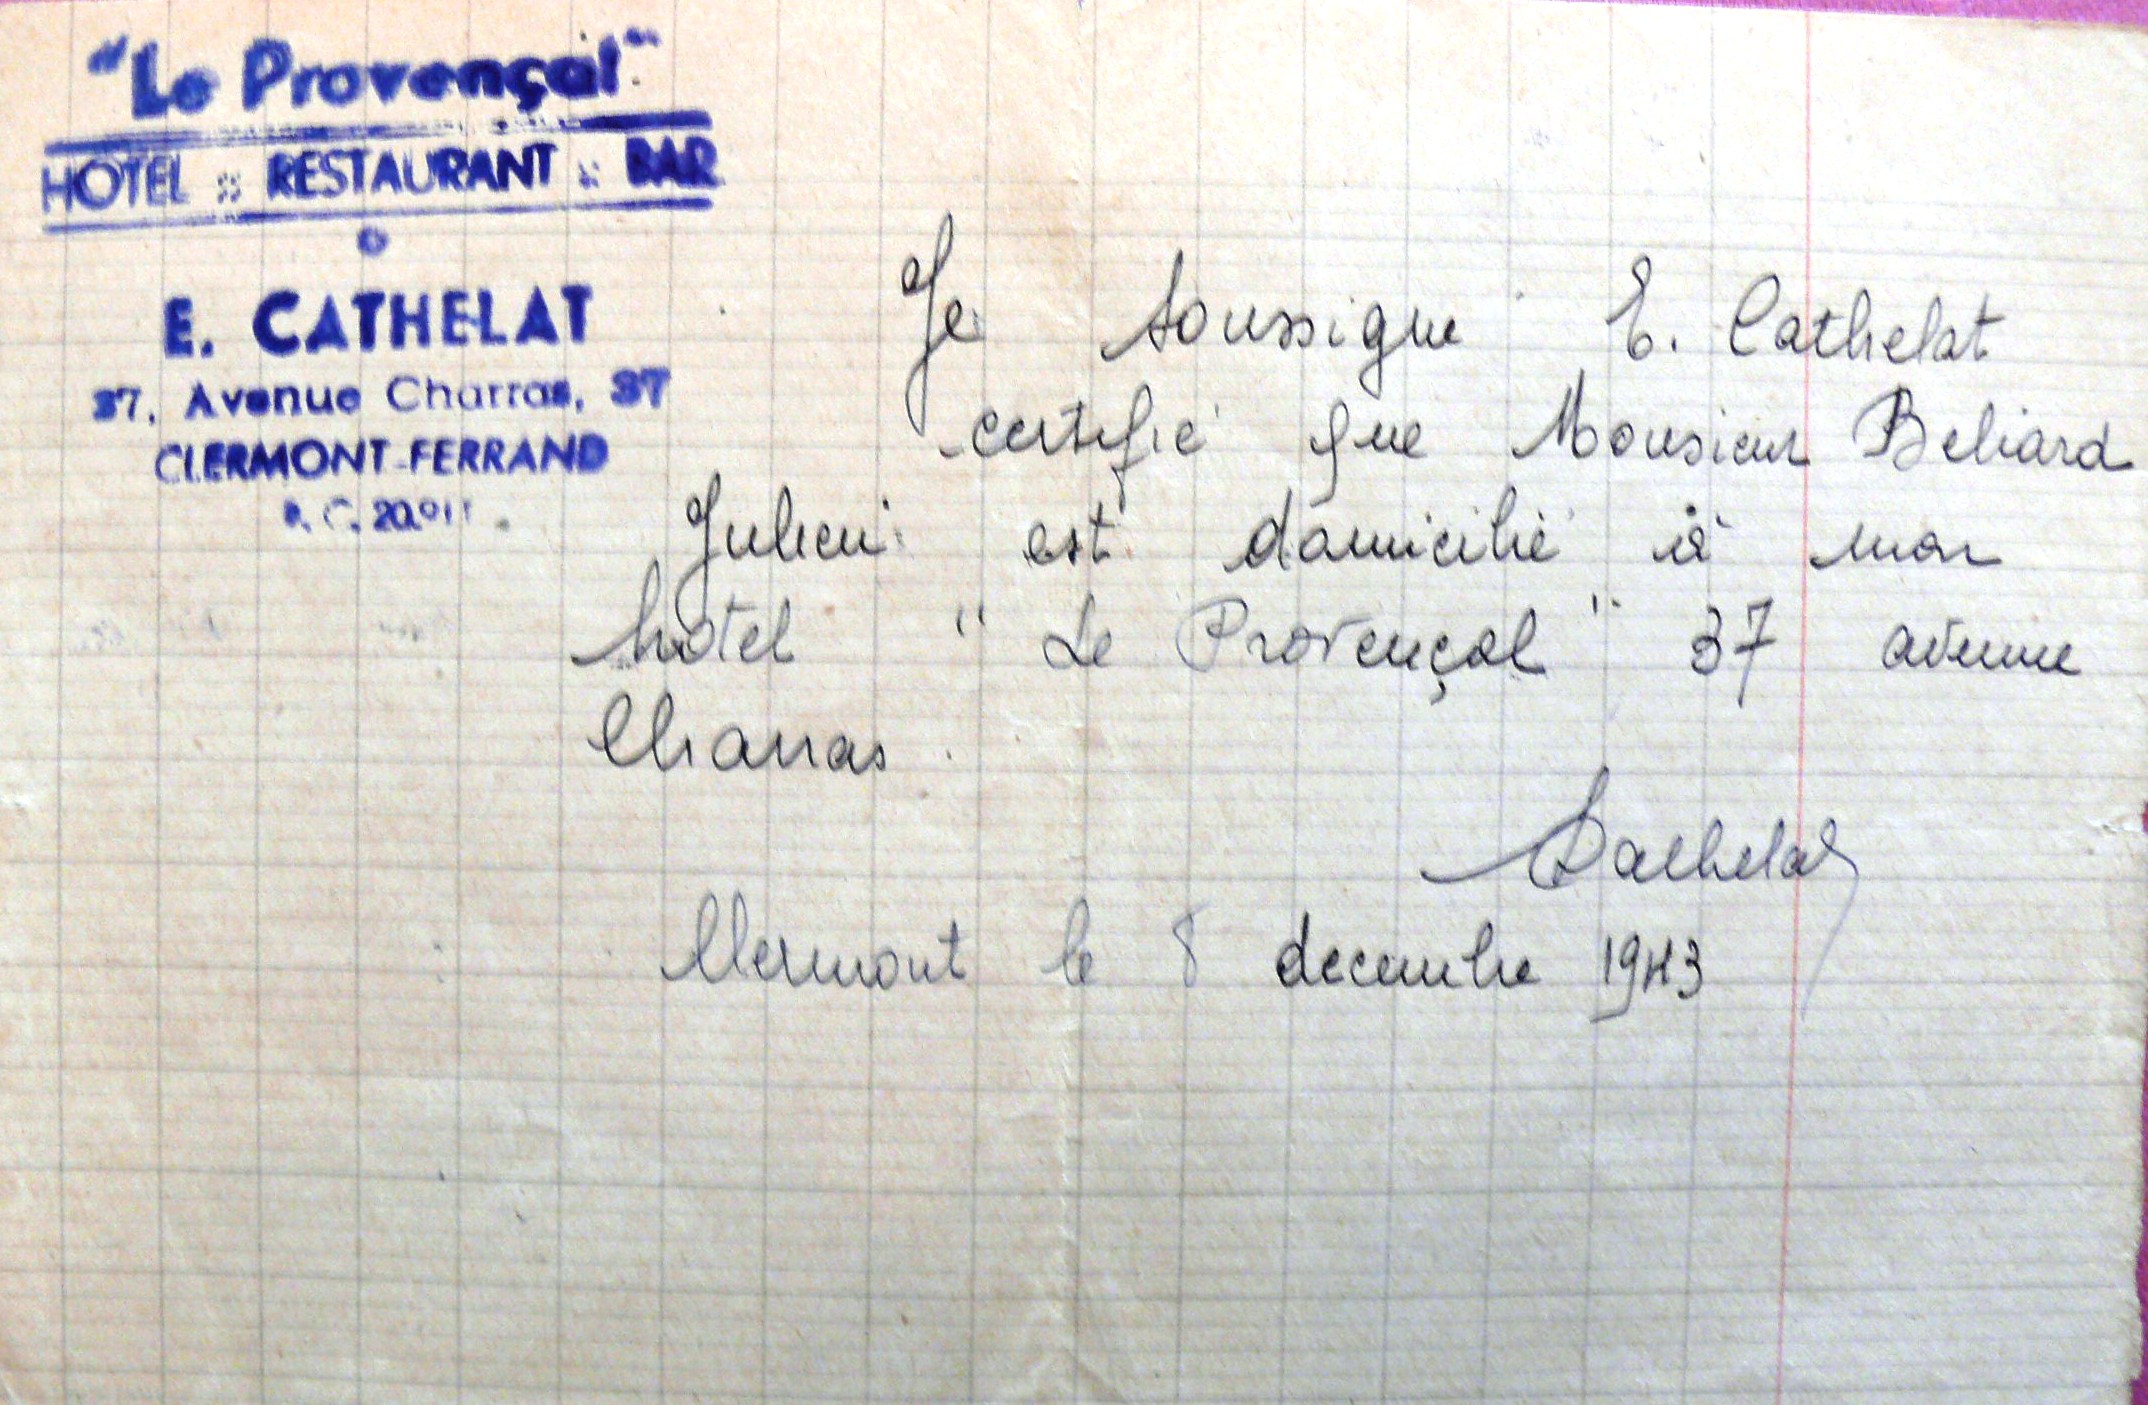 "Le Provençal"
HOTEL :: RESTAURANT :: BAR
E. CATHELAT
37, Avenue Charras, 37
CLERMONT-FERRAND
R. C. 
Je soussigne E. Cathelat
certifie que Monsieur Beliard
Julien est domicilié à mon
hotel " Le Provençal " 37 avenue
Charras.
Cathelat
Clermont le 8 decembre 1943